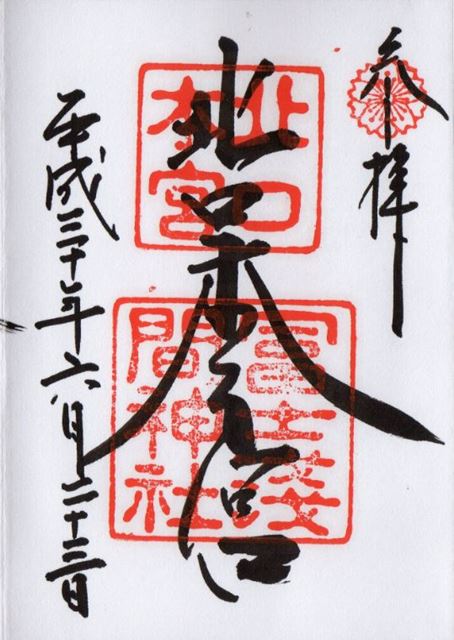 参拝
北口本宮
北口
本宮
冨士淺
間神社
平成三十年六月二十三日